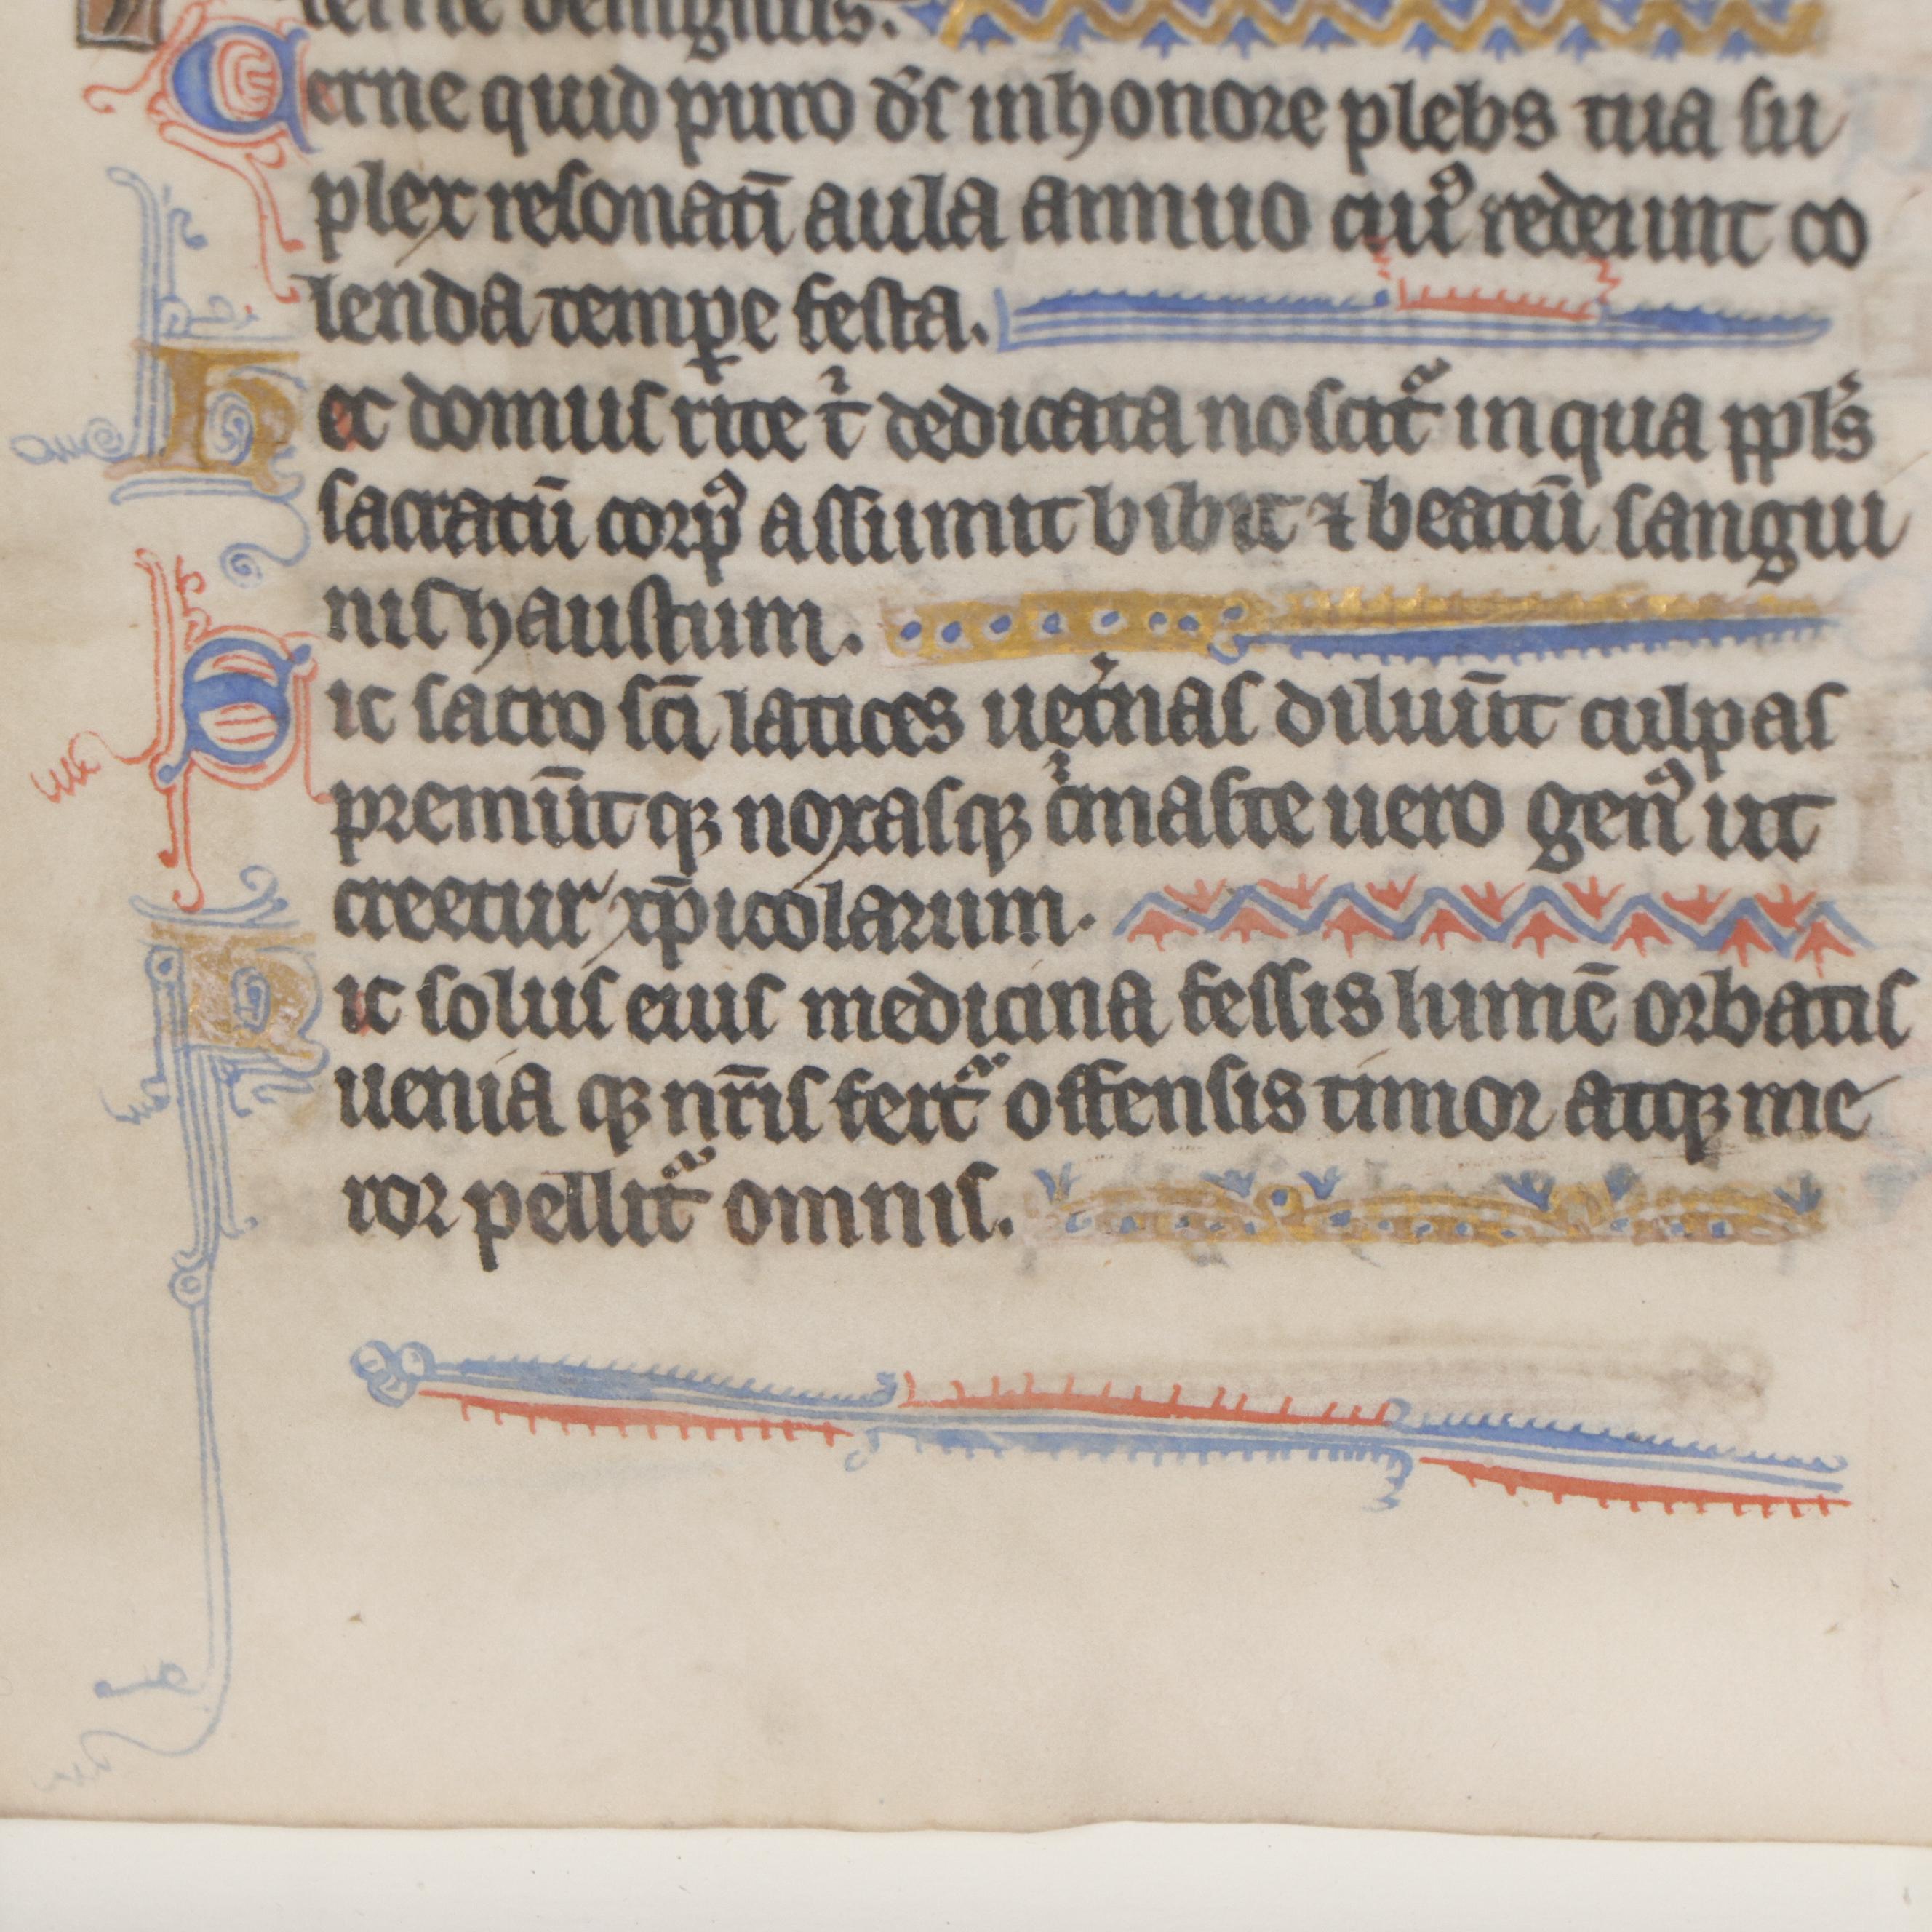 terne benignus.
Cerne quid puro d̄s inhonore plebs tua su
plex resonatī aula annuo cuiꝰ redeunt co
lenda tempꝑe festa.
hec domus rite t̾ dedicata noscit᷑ in qua ppl̄s
sacratū corpꝰ assumit bibit ⁊ beatū sangui
nis haustum.
hic sacro sc̄i latices uet̾nas diluūt culpas
premūtqꝫ noxasqꝫ c̾smaste uero genꝰ ut
creetur xp̄icolarum.
hic solus eius medicina fessis lumē orbatis
uenia qꝫ nr̄is fert᷑ offensis timor atqꝫ me
ror pellit᷑ omnis.